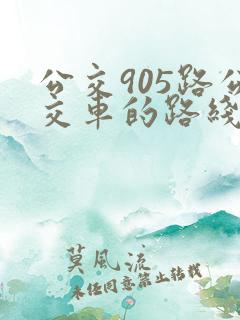 公交905路公
交车的路线
莫風流
未经同意禁止转载